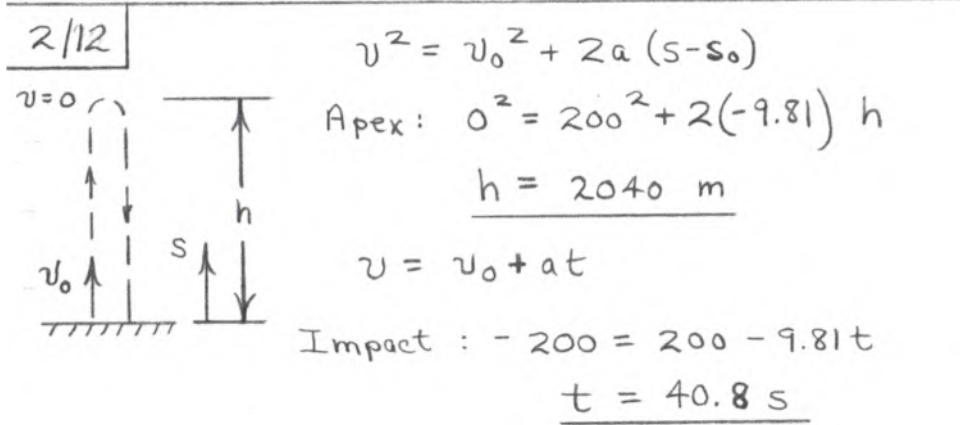 2/12
v² = v₀² + 2a (s-s₀)
v=0
Apex: 0² = 200² + 2(-9.81) h
h = 2040 m
h
s
v₀
v = v₀ + at
Impact : - 200 = 200 - 9.81t
t = 40.8 s